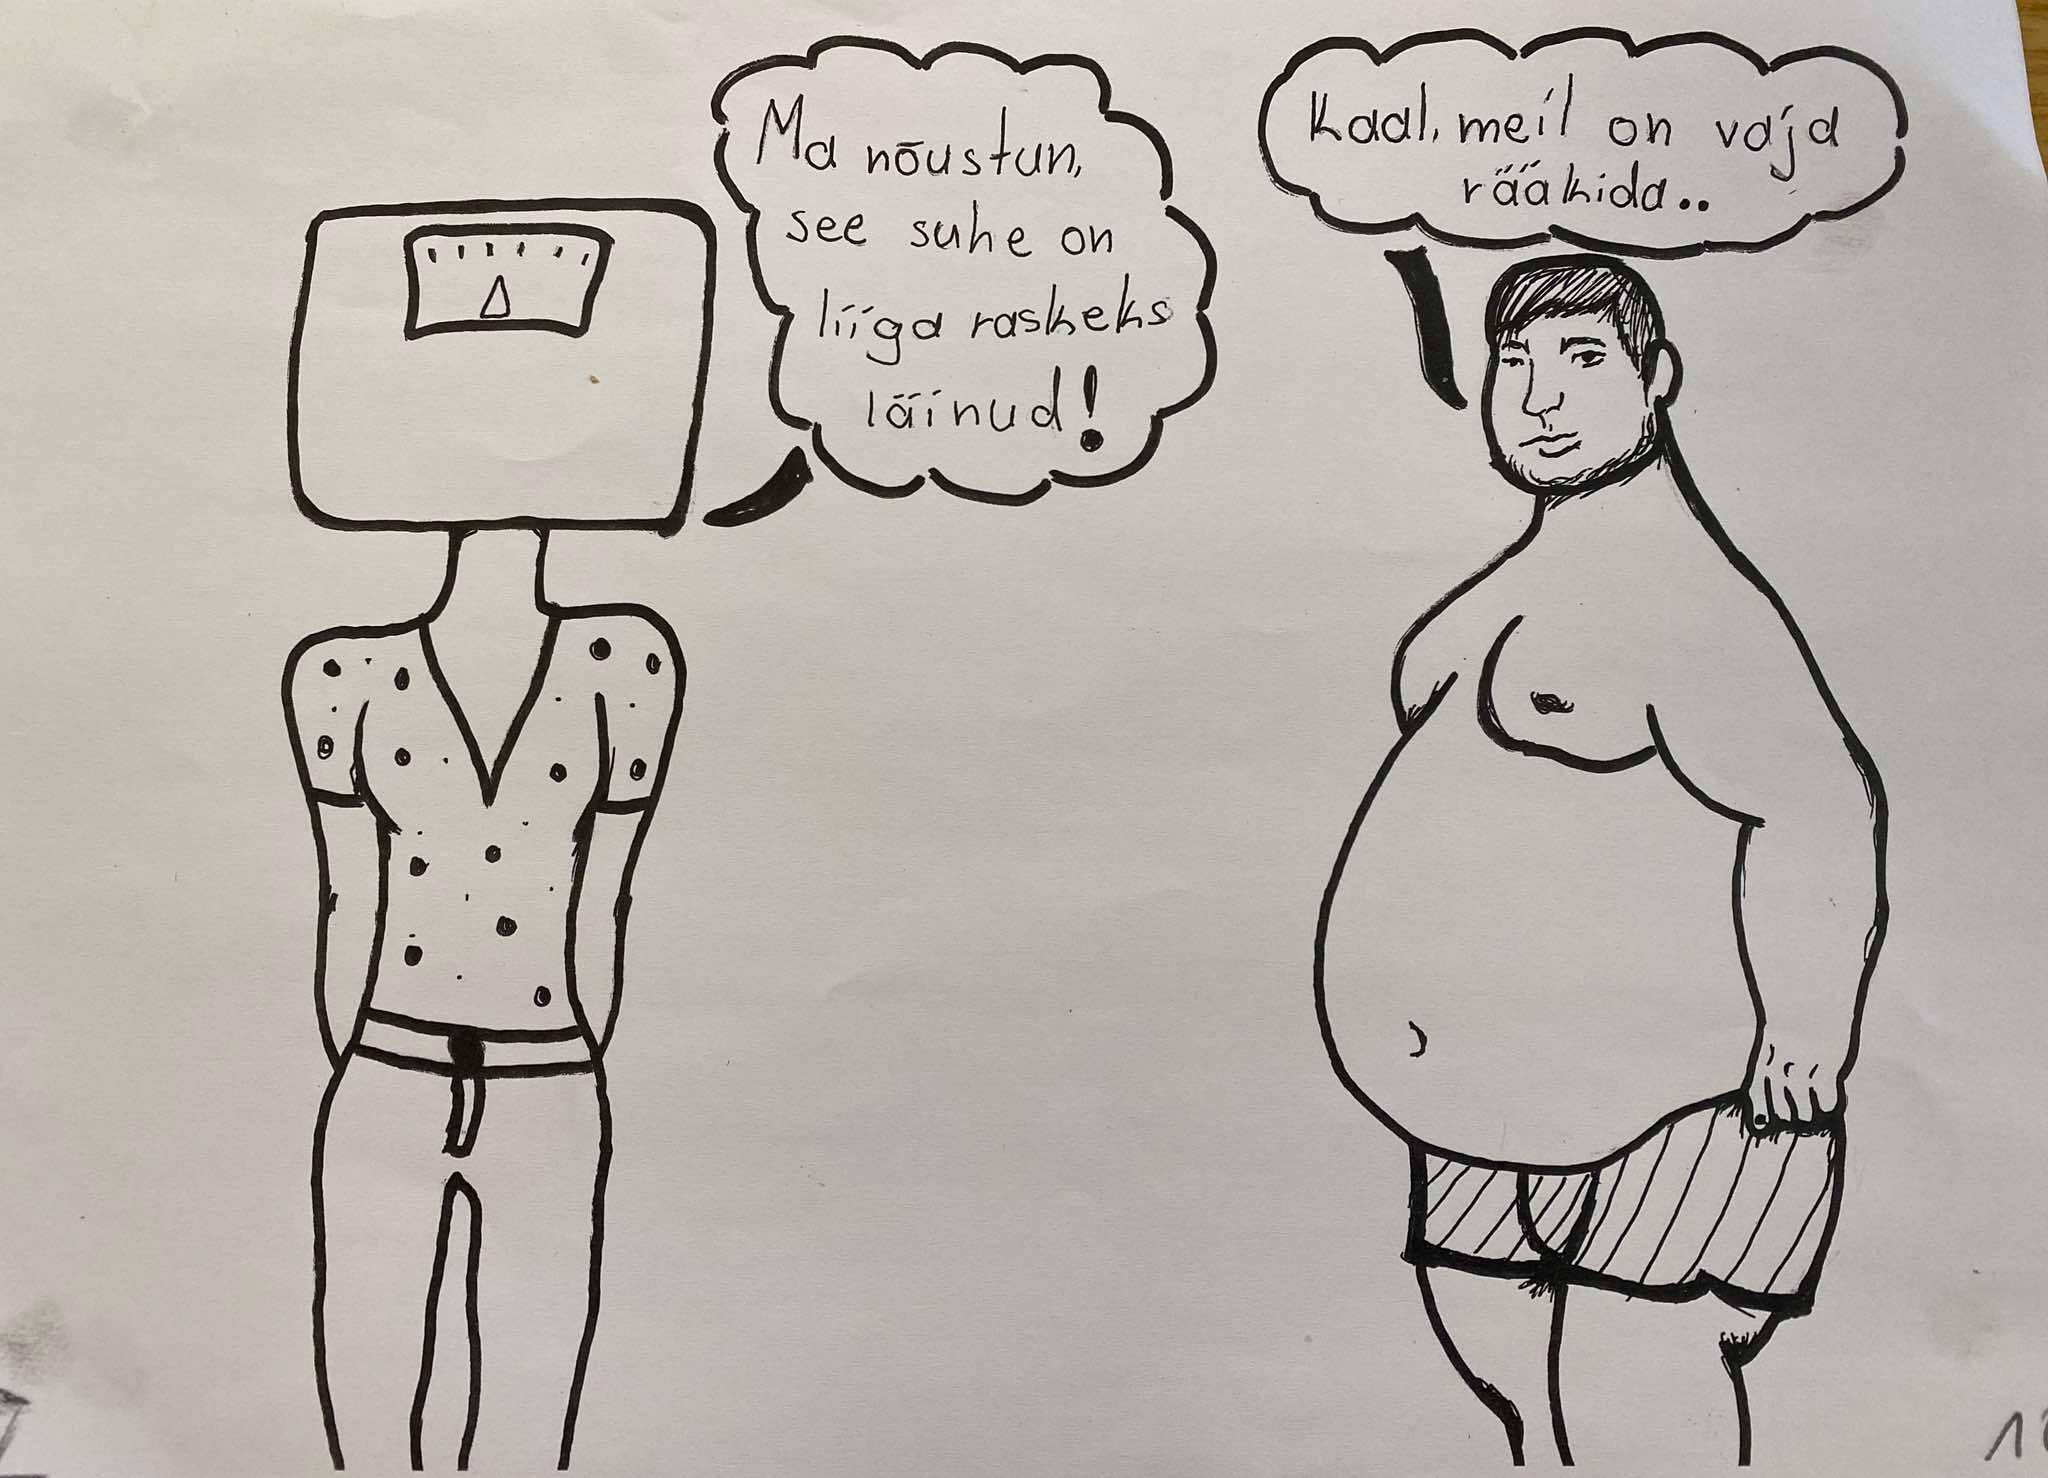 Kaal, meil on vaja
rääkida..
Ma nõustun,
see suhe on
liiga raskeks
läinud!